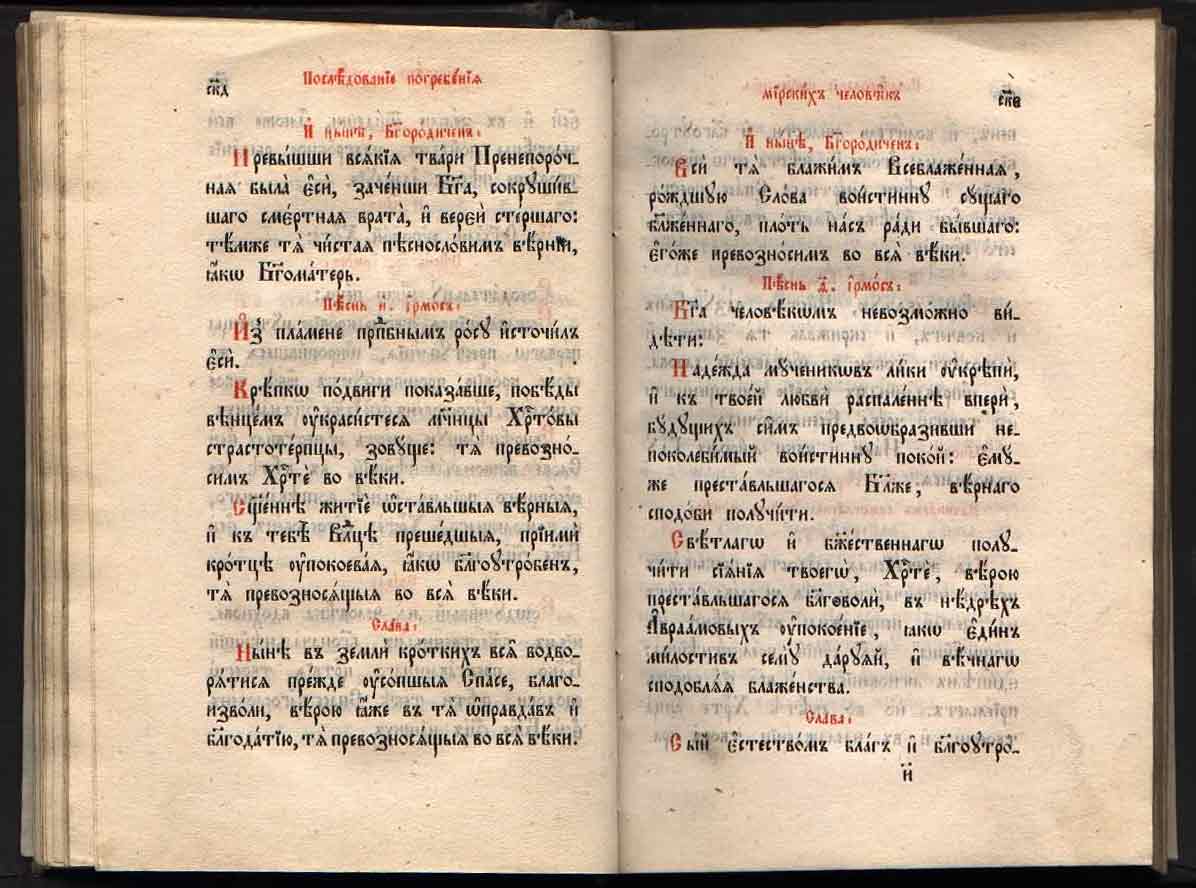 скд
Послѣ́дованїе погребе́нїѧ
И҆ ны́нѣ, Бг҃оро́диченъ:
Превы́шши всѧ́кїѧ тва́ри Пренепоро́ч-
наѧ была̀ є҆сѝ, заче́нши Бг҃а, сокруши́в-
шаго сме́ртнаѧ врата̀, и҆ верєѝ сте́ршаго:
тѣ́мже тѧ̀ чи́стаѧ пѣсносло́вимъ вѣ́рнїи,
ꙗ҆́кѡ Бг҃ома́терь.
Пѣ́снь и҃. і҆рмо́съ:
И҆з̾ пла́мене прпⷣбнымъ ро́сꙋ и҆сточи́лъ
є҆сѝ.
Крѣ́пкѡ по́двиги показа́вше, побѣ́ды
вѣнце́мъ ᲂу҆краси́стесѧ мч҃нцы Хрⷭ҇то́вы
страстоте́рпцы, зовꙋ́ще: тѧ̀ превозно́-
симъ Хрⷭ҇тѐ во вѣ́ки.
Сщ҃е́ннѣ житїѐ ѡ҆ста́вльшыѧ вѣ́рныѧ,
и҆ къ тебѣ̀ Влⷣцѣ преше́дшыѧ, прїимѝ
кро́тцѣ ᲂу҆покоева́ѧ, ꙗ҆́кѡ бл҃гоꙋтро́бенъ,
тѧ̀ превозносѧ́щыѧ во всѧ̑ вѣ́ки.
Сла́ва:
Ны́нѣ въ землѝ кро́ткихъ всѧ̑ водво-
рѧ́тисѧ пре́жде ᲂу҆со́пшыѧ Сп҃се, благо-
изво́ли, вѣ́рою ꙗ҆̀же въ тѧ̀ ѡ҆правда́въ и҆
бл҃года́тїю, тѧ̀ превозносѧ́щыѧ во всѧ̑ вѣ́ки.
мїрски́хъ человѣ́къ
ске
И҆ ны́нѣ, Бг҃оро́диченъ:
Всѝ тѧ̀ блажи́мъ Всеблаже́ннаѧ,
ро́ждшꙋю Сло́ва вои́стиннꙋ сꙋ́щаго
бл҃же́ннаго, пло́ть на́съ ра́ди бы́вшаго:
є҆го́же превозно́симъ во всѧ̑ вѣ́ки.
Пѣ́снь ѳ҃. і҆рмо́съ:
Бг҃а человѣ́кѡмъ невозмо́жно ви́-
дѣти:
Наде́жда мꙋ́ченикѡвъ ли́ки ᲂу҆крѣпѝ,
и҆ къ твое́й любвѝ распале́ннѣ вперѝ,
бꙋ́дꙋщихъ си̑мъ предвоѡбрази́вши не-
поколеби́мый вои́стиннꙋ поко́й: є҆мꙋ́-
же преста́вльшагосѧ Бл҃же, вѣ́рнаго
сподо́би полꙋчи́ти.
Свѣ́тлагѡ и҆ бжⷭ҇твеннагѡ полꙋ-
чи́ти сїѧ́нїѧ твоегѡ̀, Хрⷭ҇тѐ, вѣ́рою
преста́вльшагосѧ бл҃говолѝ, въ нѣ́дрѣхъ
А҆враа́мовыхъ ᲂу҆покое́нїе, ꙗ҆́кѡ є҆ди́нъ
ми́лостивъ семꙋ̀ да́рꙋѧй, и҆ вѣ́чнагѡ
сподоблѧ́ѧ блаже́нства.
Сла́ва:
Сы́й є҆стество́мъ бла́гъ и҆ бл҃гоꙋтро́-
и҃